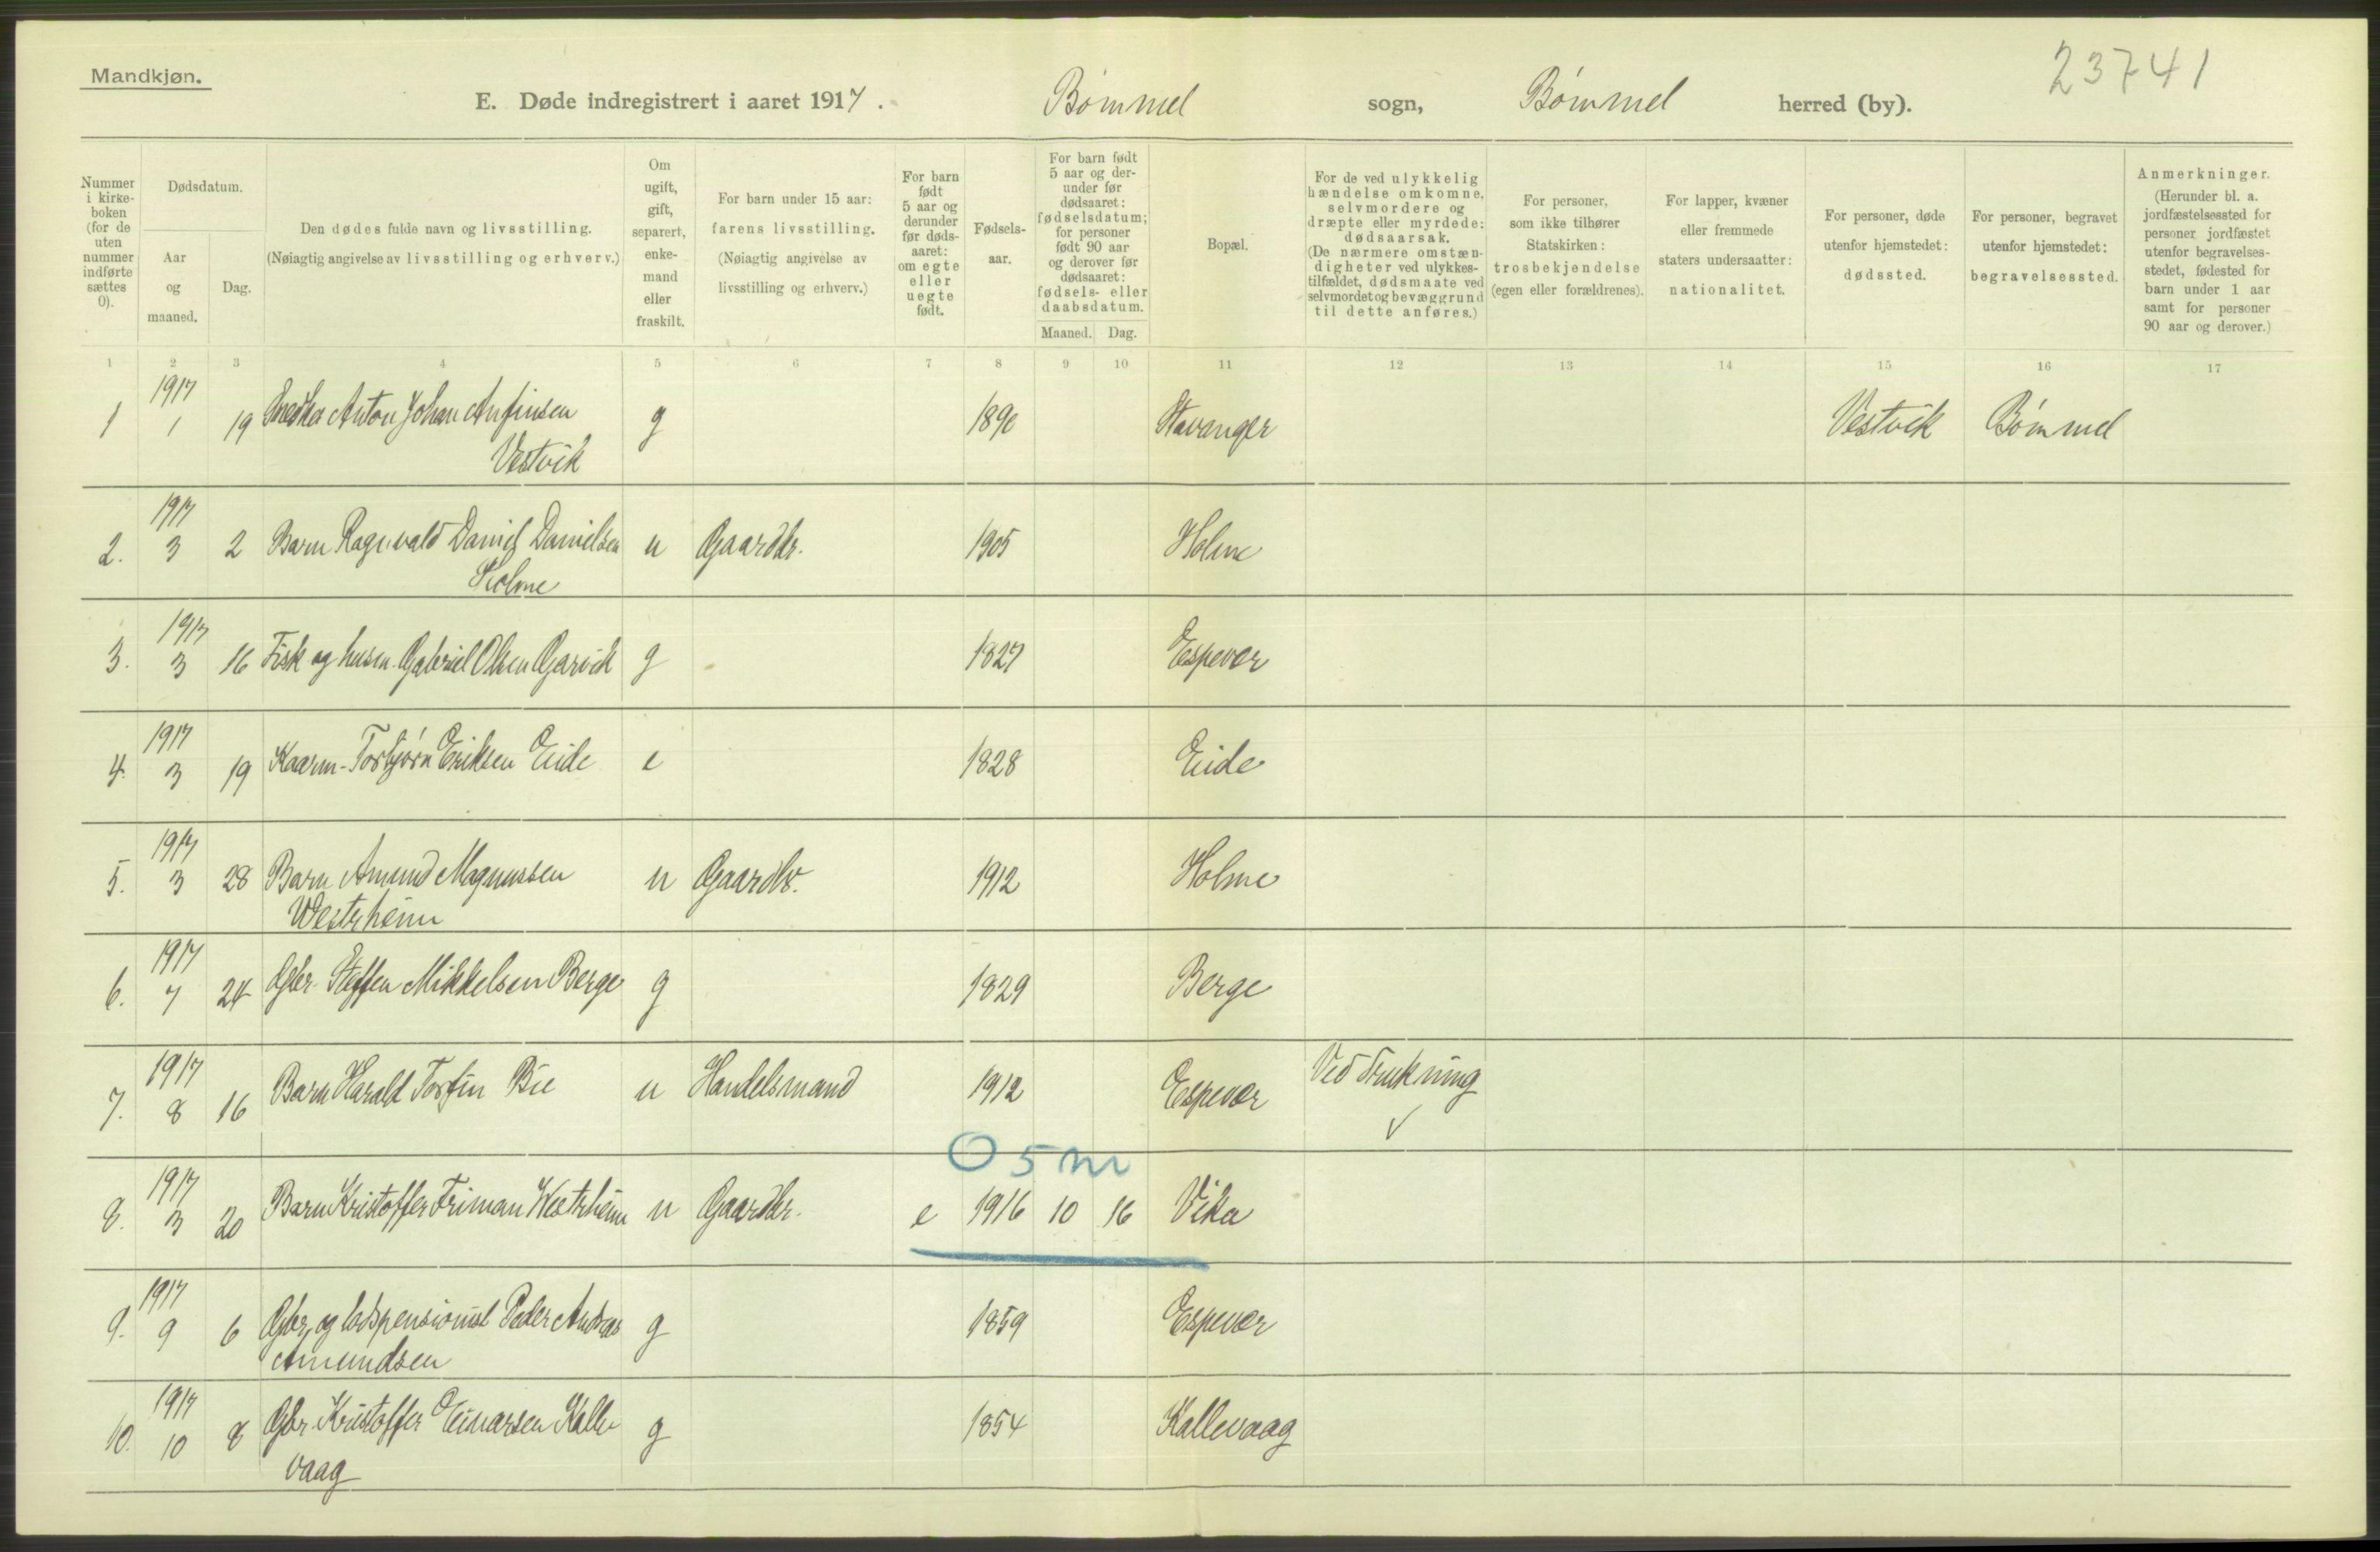 Mandkjøn.
23741
E. Døde indregistrert i aaret 1917. Bømmel sogn, Bømmel herred (by).
Nummer i kirkeboken (for de uten nummer indførte sættes 0).
Dødsdatum.
Aar og maaned.
Dag.
Den dødes fulde navn og livsstilling.
(Nøiagtig angivelse av livsstilling og erhverv.)
Om ugift, gift, separert, enkemand eller fraskilt.
For barn under 15 aar: farens livsstilling.
(Nøiagtig angivelse av livsstilling og erhverv.)
For barn født 5 aar og derunder før dødsaaret: om egte eller uegte født.
Fødselsaar.
For barn født 5 aar og derunder før dødsaaret: fødselsdatum; for personer født 90 aar og derover før dødsaaret: fødsels- eller daabsdatum.
Maaned. Dag.
Bopæl.
For de ved ulykkelig hændelse omkomne, selvmordere og dræpte eller myrdede: dødsaarsak.
(De nærmere omstændigheter ved ulykkestilfældet, dødsmaate ved selvmordet og bevæggrund til dette anføres.)
For personer, som ikke tilhører Statskirken: trosbekjendelse (egen eller forældrenes).
For lapper, kvæner eller fremmede staters undersaatter: nationalitet.
For personer, døde utenfor hjemstedet: dødssted.
For personer, begravet utenfor hjemstedet: begravelsessted.
Anmerkninger.
(Herunder bl. a. jordfæstelsessted for personer jordfæstet utenfor begravelsesstedet, fødested for barn under 1 aar samt for personer 90 aar og derover.)
1 2 3 4 5 6 7 8 9 10 11 12 13 14 15 16 17
1917
1 1 19 Anton Johan Anfinsen g 1890 Stavanger Vestvik Bømmel
Vestvik
1917
2. 3 2 Barn Ragnvald Daniel Danielsen u Gaardbr. 1905 Holme
Holme
1917
3. 3 16 Fisk og husm. Gabriel Olsen Gjarvik g 1827 Espevær
1917
4. 3 19 Kaarm- Torbjørn Eriksen Eide e 1828 Eide
1917
5. 3 28 Barn Amund Magnussen u Gaardbr. 1912 Holme
Westrheim
1917
6. 7 24 Gbr. Steffen Mikkelsen Berge g 1829 Berge
1917
7. 8 16 Barn Harald Torfin Bie u Handelsmand 1912 Espevær Ved Drukning
✓
0 5 m
1917
8. 3 20 Barn Kristoffer Friman Westrheim u Gaardbr. e 1916 10 16 Vika
1917
9. 9 6 Gbr, og lodspensionist Peder Andreas g 1859 Espevær
Amundsen
1917
10. 10 8 Gbr. Kristoffer Einarsen Kalle g 1854 Kallevaag
vaag